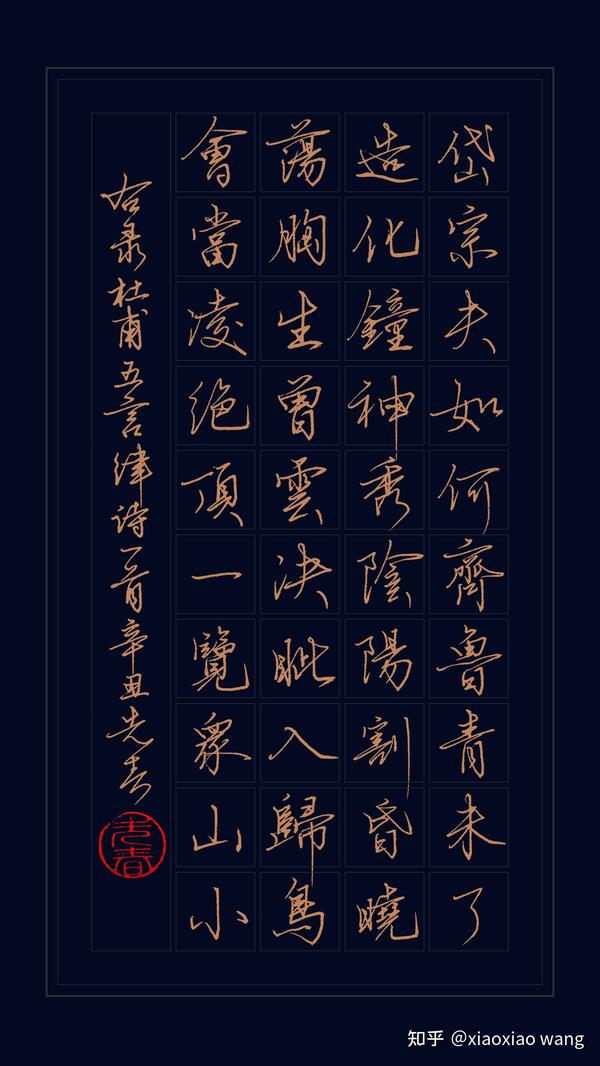 岱宗夫如何齊魯青未了
造化鐘神秀陰陽割昏曉
蕩胸生曾雲決眥入歸鳥
會當凌絕頂一覽眾山小
右录杜甫五言律诗一首辛丑先春
先春
知乎 @xiaoxiao wang